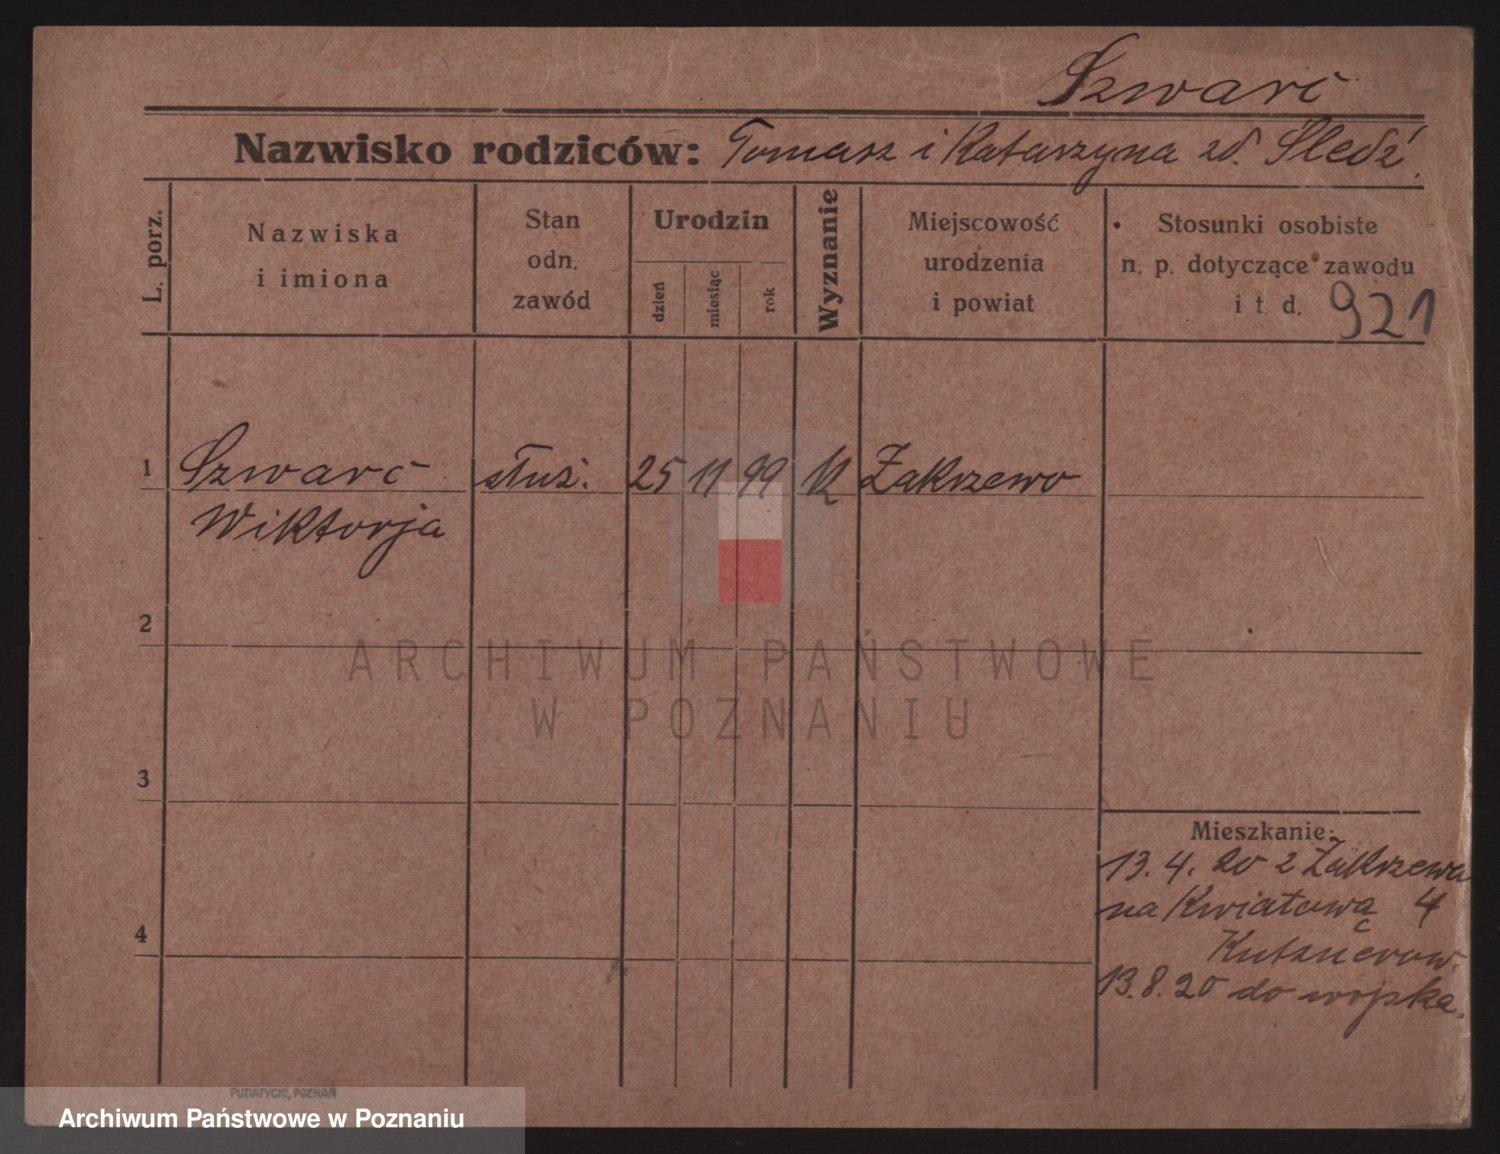 Szwarc
Nazwisko rodziców: Tomasz i Katarzyna zd. Śledź.
L. porz.
Nazwiska
i imiona
Stan
odn.
zawód
Urodzin
dzień
miesiąc
rok
Wyznanie
Miejscowość
urodzenia
i powiat
Stosunki osobiste
n. p. dotyczące zawodu
i t. d. 921
1 Szwarc służ. 25 11 99 k Zakrzewo
Wiktorja
2
ARCHIWUM PAŃSTWOWE
W POZNANIU
3
Mieszkanie:
13. 4. 20 z Zakrzewa
na Kwiatową 4
4
13. 8. 20 do wojska.
PUTIATYCKI, POZNAŃ
Archiwum Państwowe w Poznaniu